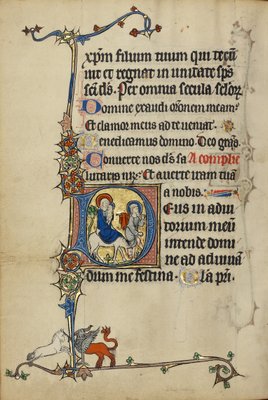 xpm filium tuum qui tecu
uit et regnat in unitate sps
sci ds. Per omnia secula sclor
Domine exaudi oronem meam
Et clamor meus ad te ueniat.
Benedicamus domino. Deo gras
Conuerte nos ds sa A complie
lutaris nr. Et auerte iram tua
a nobis.
Deus in adiu
torium meu
intende domi
ne ad adiuua
dum me festina. Gla pri.